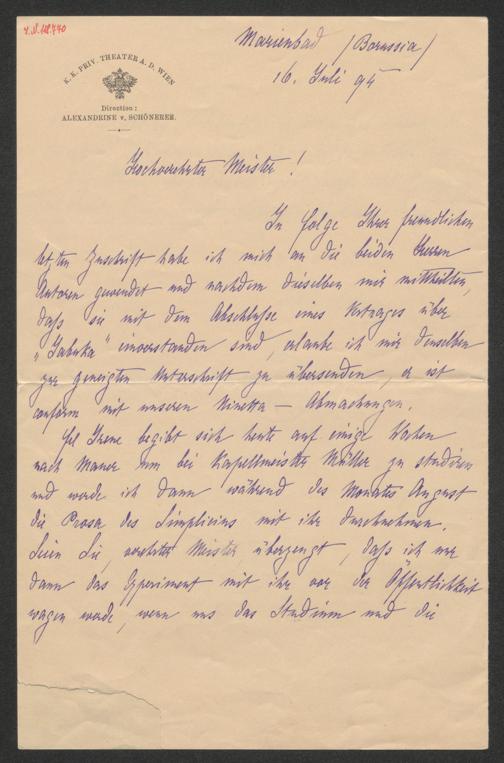 K. K. PRIV. THEATER A. D. WIEN
Direction:
ALEXANDRINE v. SCHÖNERER.
Marienbad /Borussia/
16. Juli 95
Hochverehrter Meister!
In folge Ihrer freundlichen
letzten Zuschrift habe ich mich an die beiden Herren
Autoren gewendet und nachdem dieselben mir mittheilten,
daß sie mit dem Abschlusse eines Vertrages über
„Jabuka" einverstanden sind, erlaube ich mir denselben
zur geneigten Unterschrift zu übersenden, er ist
conform mit unseren Ninetta - Abmachungen.
Frl Irene begibt sich heute auf einige Wochen
nach Mauer um bei Kapellmeister Müller zu studiren
und werde ich dann während des Monates August
die Prosa des Simplicius mit ihr durchnehmen.
Seien Sie, verehrter Meister überzeugt, daß ich nur
dann das Experiment mit ihr vor der Öffentlichkeit
wagen werde, wenn uns das Studium und die